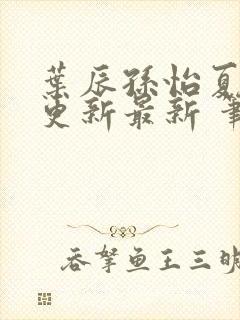 葉辰孫怡夏
更新最新 筆
吞拏鱼王三